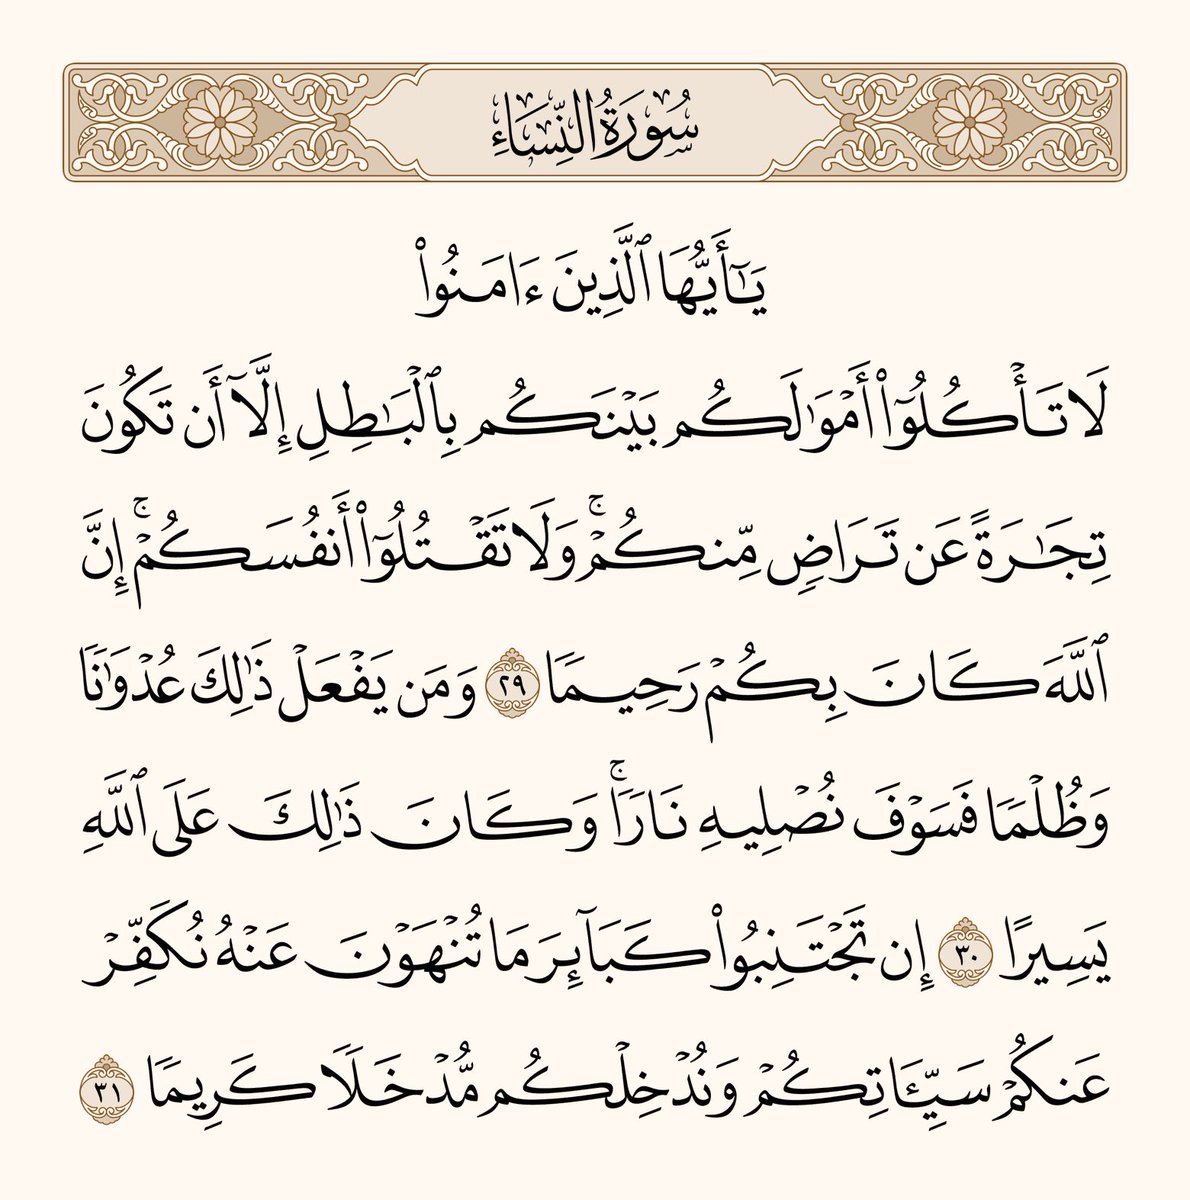 سُورَةُ النِّسَاءِ
يَـٰٓأَيُّهَا ٱلَّذِينَ ءَامَنُوا۟
لَا تَأْكُلُوٓا۟ أَمْوَٰلَكُم بَيْنَكُم بِٱلْبَـٰطِلِ إِلَّآ أَن تَكُونَ
تِجَـٰرَةً عَن تَرَاضٍ مِّنكُمْ ۚ وَلَا تَقْتُلُوٓا۟ أَنفُسَكُمْ ۚ إِنَّ
ٱللَّهَ كَانَ بِكُمْ رَحِيمًا ٢٩ وَمَن يَفْعَلْ ذَٰلِكَ عُدْوَٰنًا
وَظُلْمًا فَسَوْفَ نُصْلِيهِ نَارًا ۚ وَكَانَ ذَٰلِكَ عَلَى ٱللَّهِ
يَسِيرًا ٣٠ إِن تَجْتَنِبُوا۟ كَبَآئِرَ مَا تُنْهَوْنَ عَنْهُ نُكَفِّرْ
عَنكُمْ سَيِّـَٔاتِكُمْ وَنُدْخِلْكُم مُّدْخَلًا كَرِيمًا ٣١